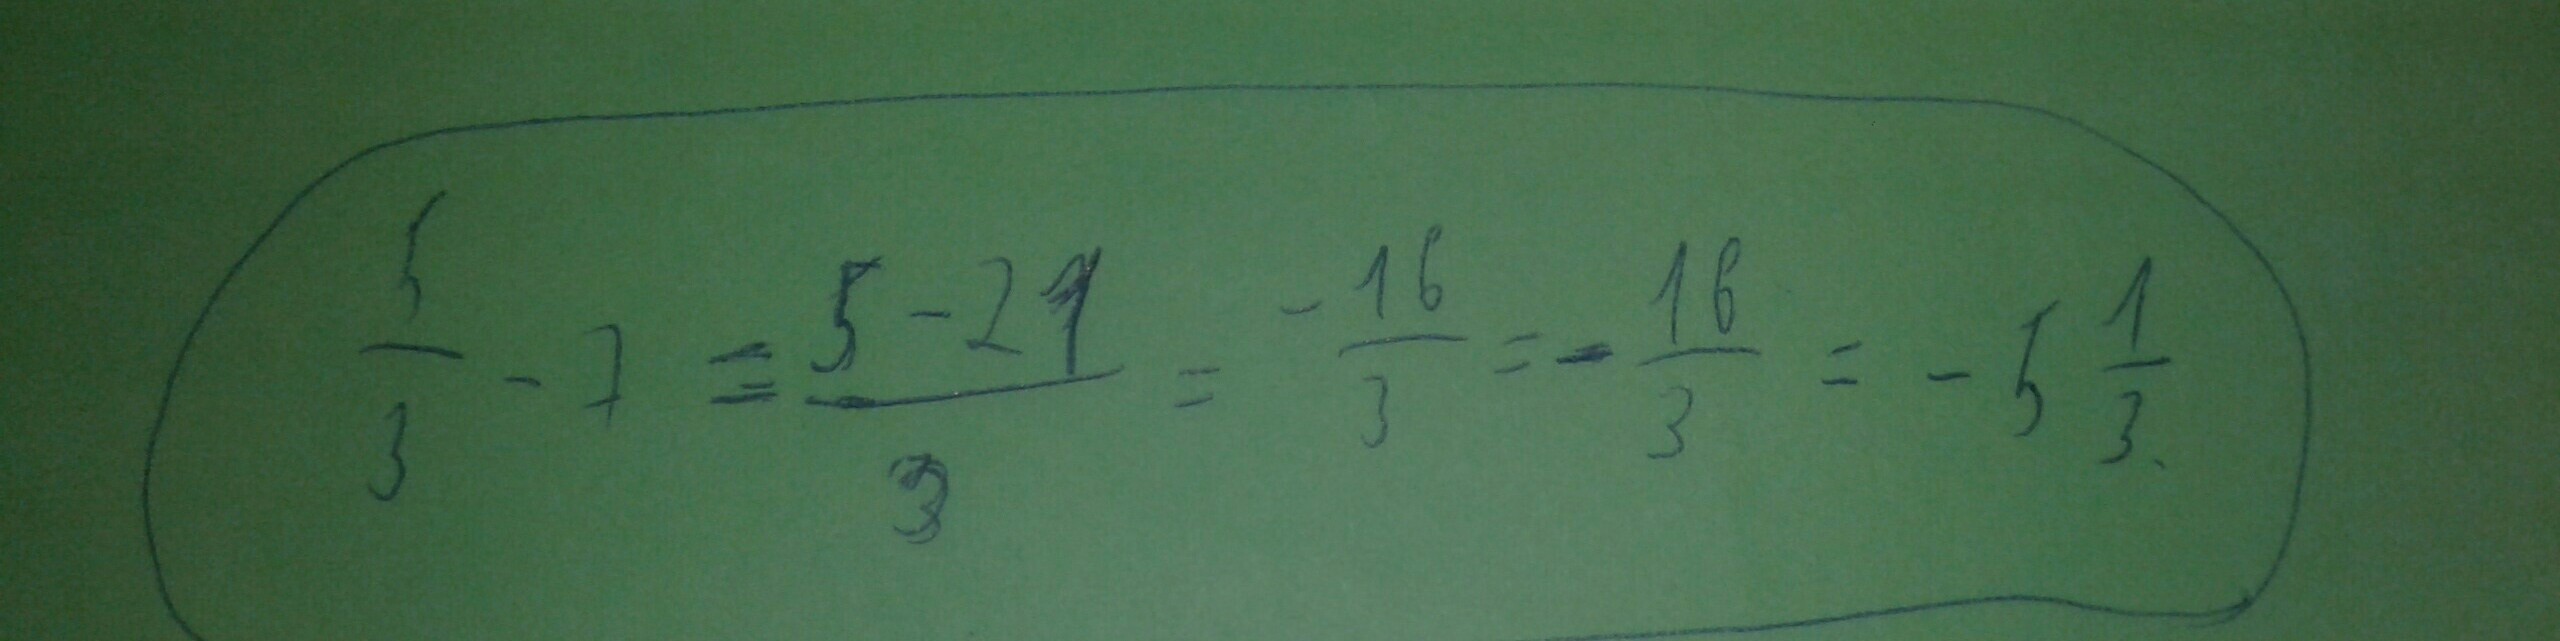 5/3 - 7 = (5 - 21)/3 = -16/3 = - 16/3 = - 5 1/3.